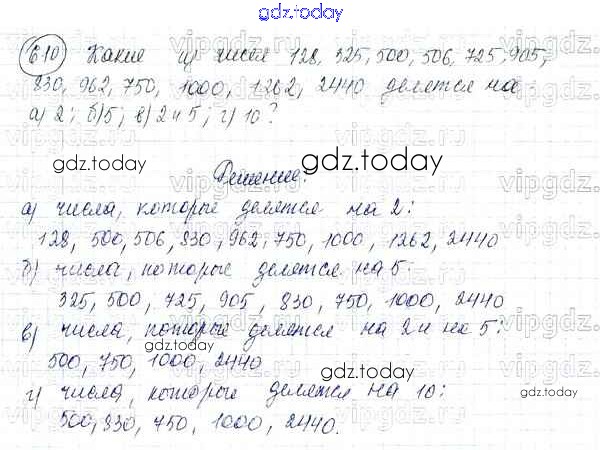 gdz.today
610 Какие из чисел 128, 325, 500, 506, 725, 905,
830, 962, 750, 1000, 1262, 2440 делятся на
а) 2; б) 5; в) 2 и 5; г) 10?
gdz.today
gdz.today
gdz.today
Решение:
а) числа, которые делятся на 2:
128, 500, 506, 830, 962, 750, 1000, 1262, 2440
б) числа, которые делятся на 5
325, 500, 725, 905, 830, 750, 1000, 2440
в) числа, которые делятся на 2 и на 5:
gdz.today
500, 750, 1000, 2440
г) числа, которые делятся на 10:
gdz.today
500, 830, 750, 1000, 2440.